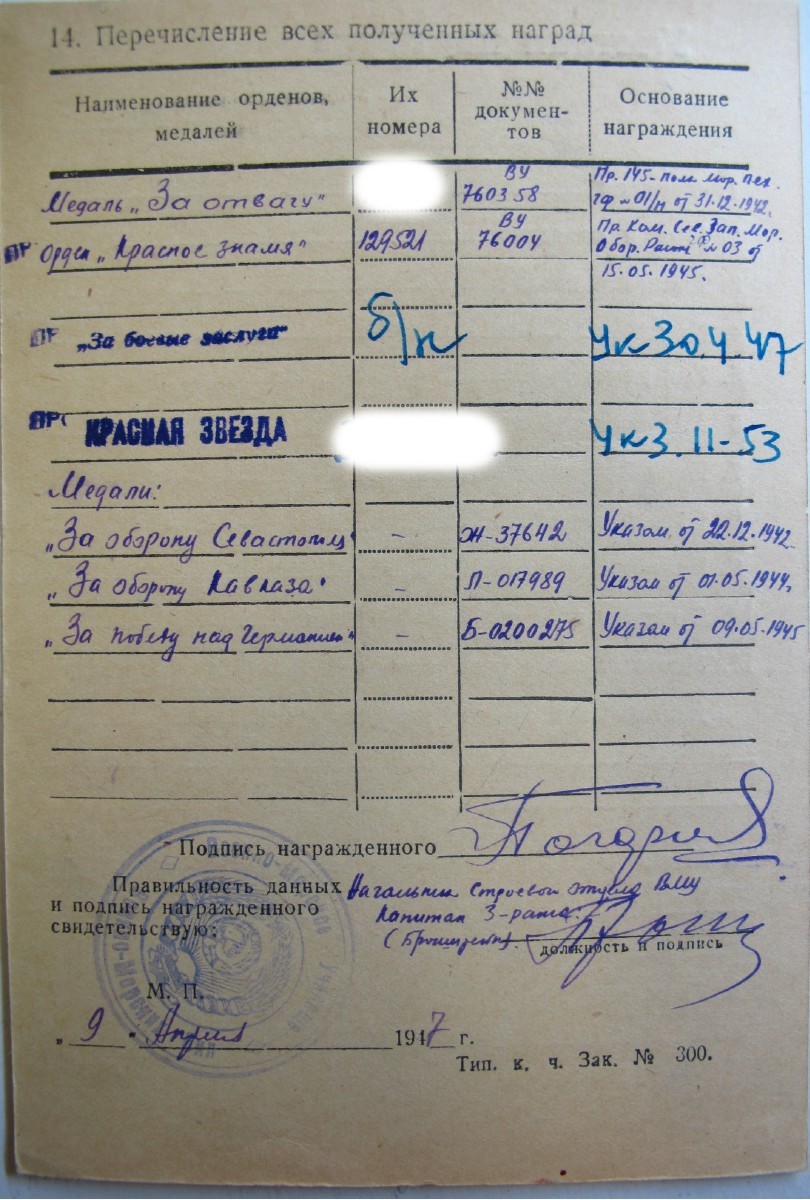 14. Перечисление всех полученных наград
Наименование орденов,
медалей
Их
номера
№№
докумен-
тов
Основание
награждения
Медаль „За отвагу"
ВУ
760358
Пр. 145- полк Мор. Пех.
№ 01/н от 31.12.1942.
ПР Орден „Красное знамя"
129521
ВУ
76004
Пр. Ком. Сев. Зап. Мор.
Обор. № 03 от
15.05.1945.
ПР „За боевые заслуги"
б/н
Ук 30.4.47
ПР КРАСНАЯ ЗВЕЗДА
Ук 3.11-53
Медали:
„За оборону Севастополя
-
Ж-37642
Указом от 22.12.1942
„За оборону Кавказа"
-
Л-017989
Указом от 01.05.1944.
„За победу над Германией"
-
Б-0200275
Указом от 09.05.1945
Подпись награжденного
Правильность данных
и подпись награжденного
свидетельствую:
Начальник Строевого отдела ВМУ
Капитан 3-ранга
должность и подпись
М. П.
„ 9 " Апреля 1947 г.
Тип. к. ч. Зак. № 300.